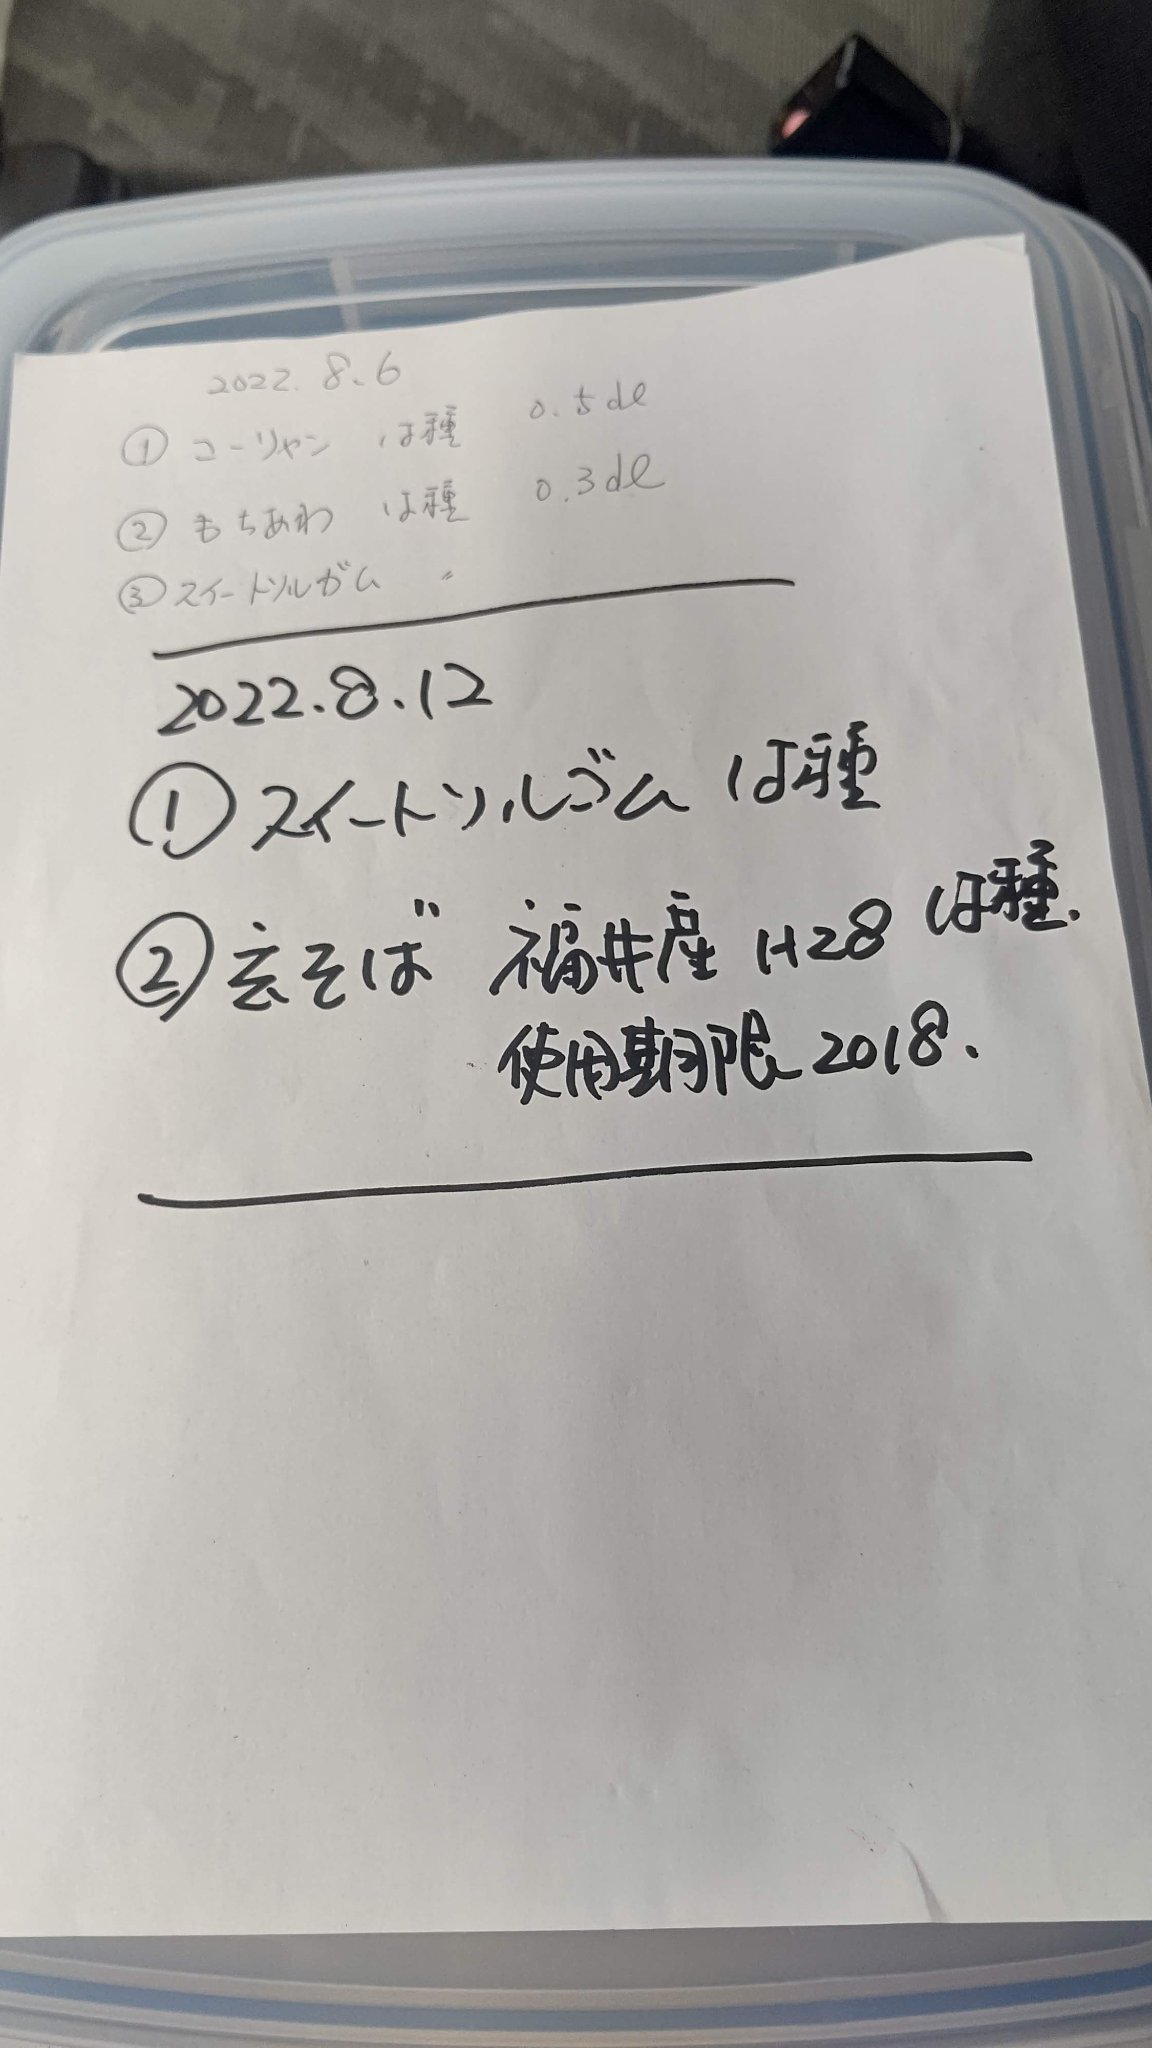 2022.8.6
① コーリャン は種 0.5dl
② もちあわ は種 0.3dl
③ スイートソルガム 〃
2022.8.12
① スイートソルゴム は種
② 玄そば 福井産 H28 は種.
使用期限 2018.